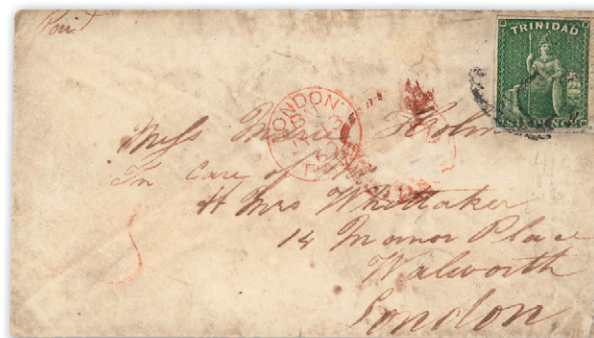 Paid
TRINIDAD
LONDON
Miss Marie Holm
In care of
H Mrs Whittaker
14 Manor Place
Walworth
London